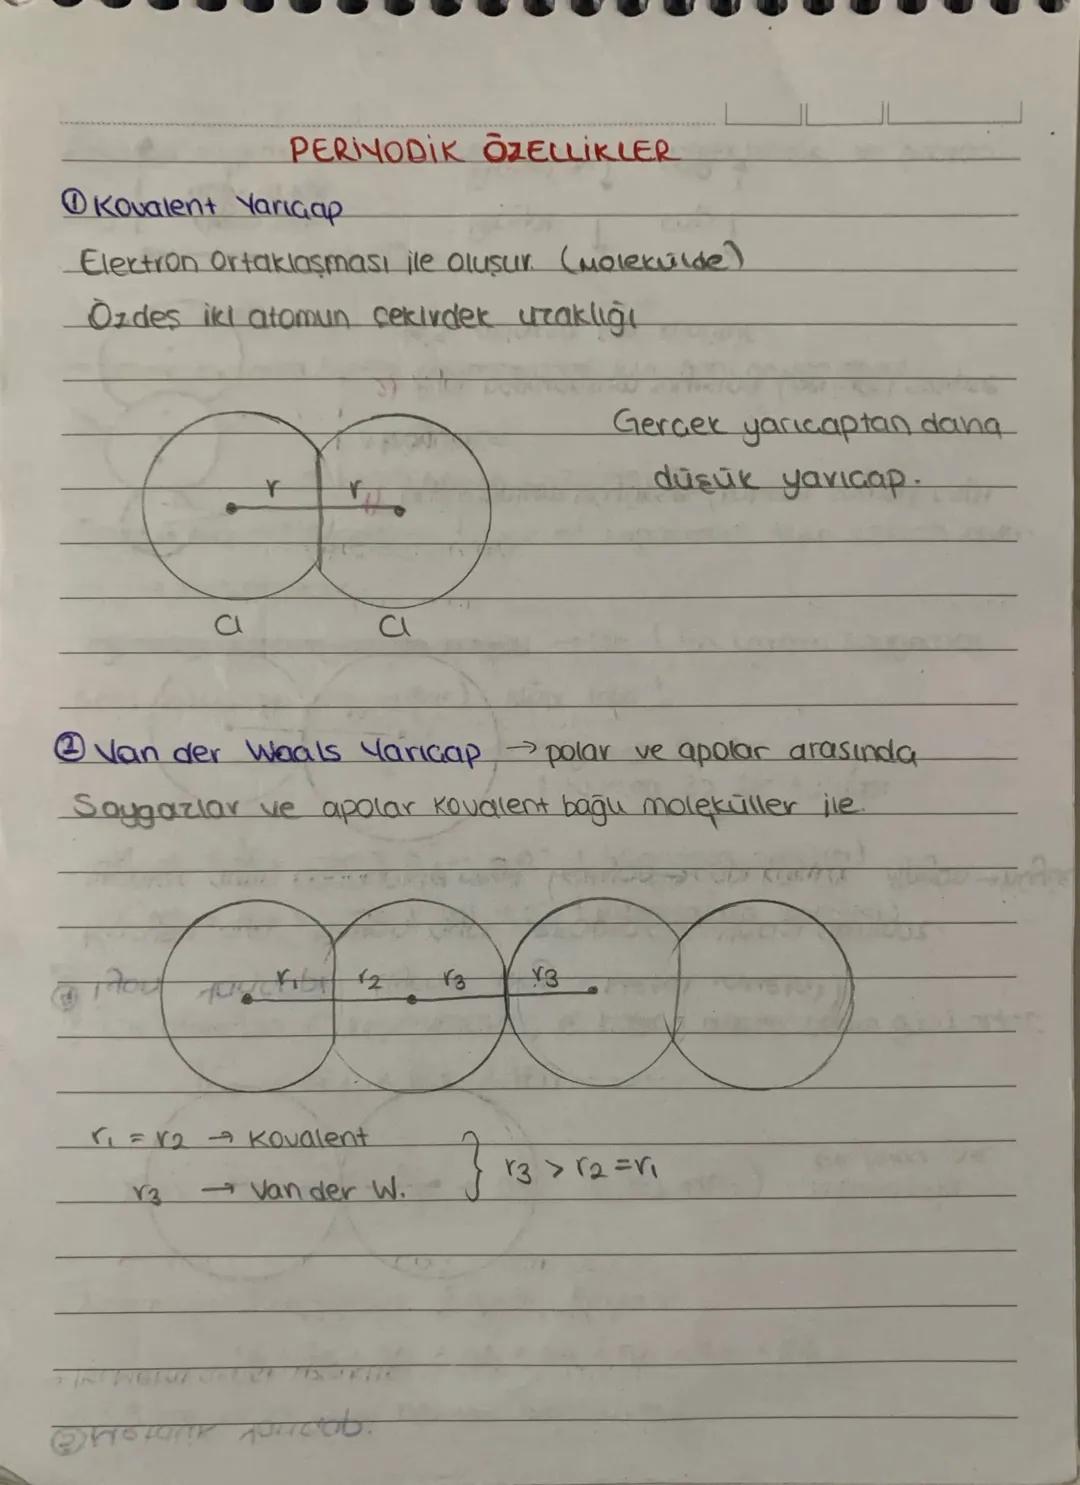 PERİYODİK ÖZELLİKLER
① Kovalent Yarıçap
Elektron Ortaklaşması ile oluşur. (Molekülde)
Özdeş iki atomun çekirdek uzaklığı
Gerçek yarıçaptan daha
düşük yarıçap.
r r
Cl Cl
② Van der Waals Yarıçap → polar ve apolar arasında
Soygazlar ve apolar kovalent bağlı moleküller ile.
r1 r2 r3 r3
r1 = r2 → Kovalent
r3 → Van der W.
} r3 > r2 = r1